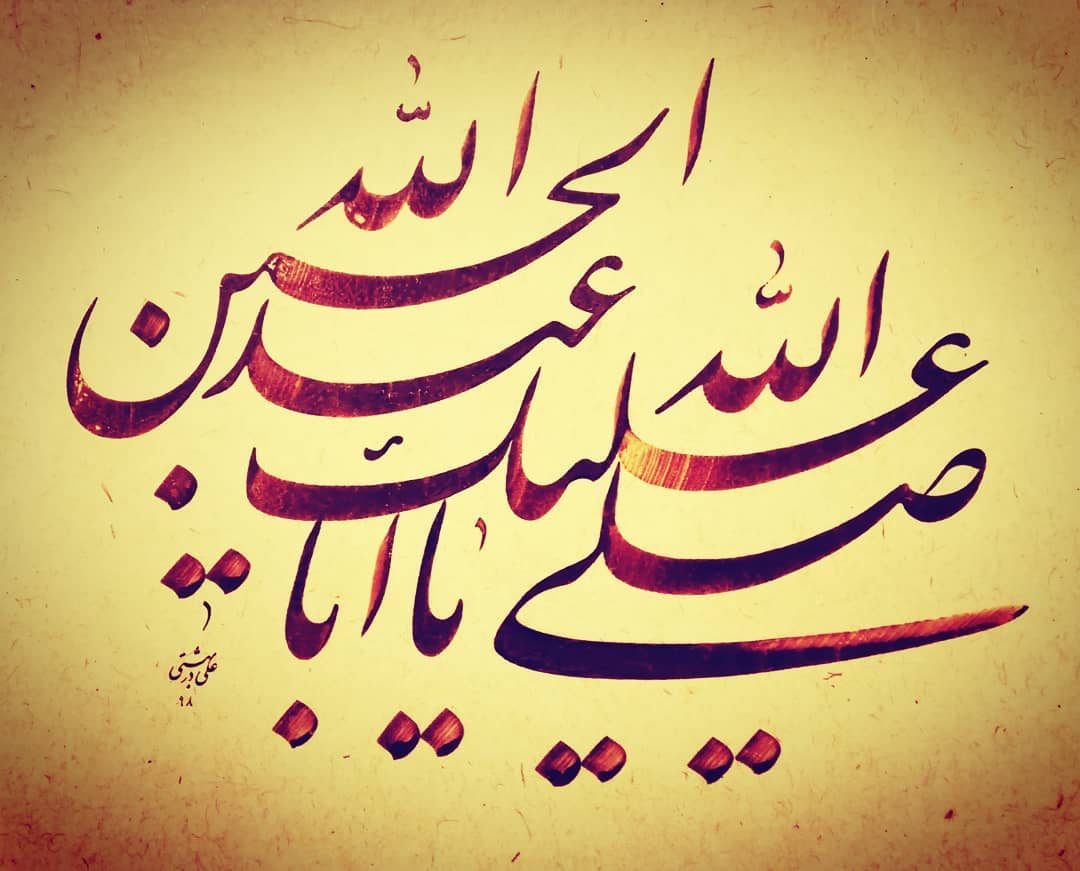 صلی الله علیک یا اباعبدالله الحسین
علی در بهشتی
۹۸